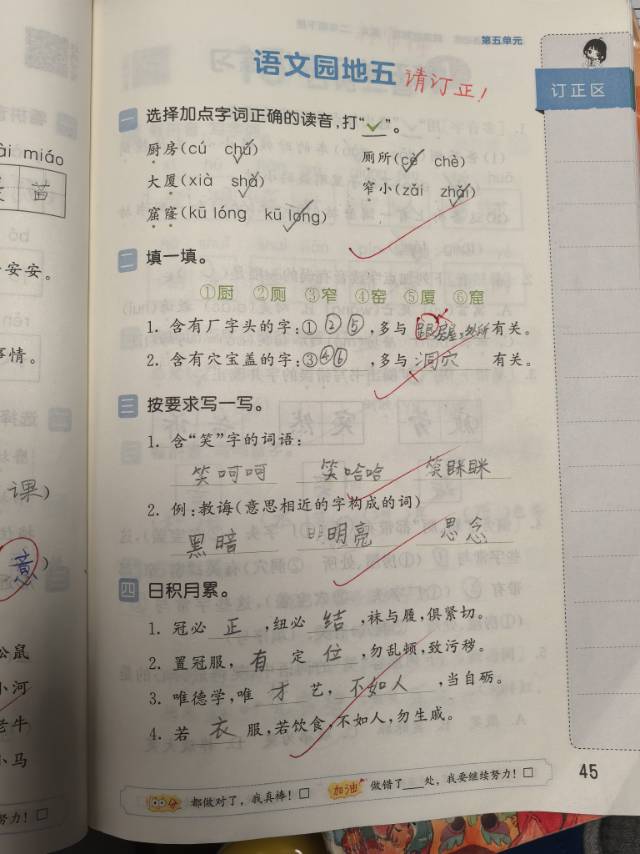 ài miáo
苗
安安。
事情。
课)
意)
公鼠
小河
老牛
小马
努力! □
第五单元
语文园地五 请订正!
订正区
一 选择加点字词正确的读音,打“✓”。
厨房(cú chú) 厕所(cè chè)
大厦(xià shà) 窄小(zǎi zhǎi)
窟窿(kū lóng kū long)
二 填一填。
①厨 ②厕 ③窄 ④窑 ⑤厦 ⑥窟
1. 含有厂字头的字:① ② ⑤ ,多与 有关。
2. 含有穴宝盖的字:③④⑥ ,多与 洞穴 有关。
三 按要求写一写。
1. 含“笑”字的词语:
笑呵呵 笑哈哈 笑眯眯
2. 例:教诲(意思相近的字构成的词)
黑暗 明亮 思念
四 日积月累。
1. 冠必 正 ,纽必 结 ,袜与履,俱紧切。
2. 置冠服, 有 定 位 ,勿乱顿,致污秽。
3. 唯德学,唯 才 艺, 不如人 ,当自砺。
4. 若 衣 服,若饮食,不如人,勿生戚。
100分 都做对了,我真棒! □ 加油 做错了___处,我要继续努力! □
45